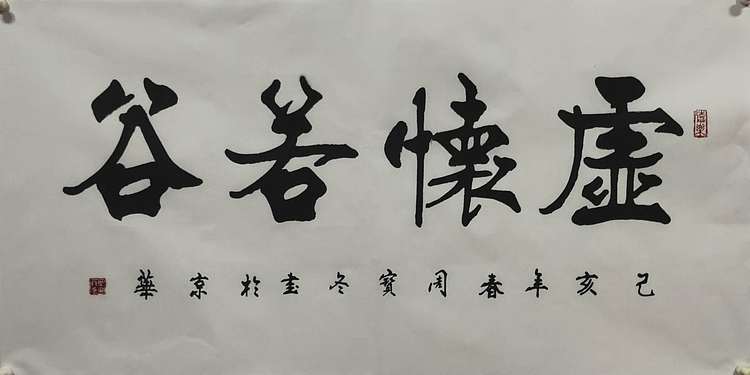 虛懷若谷
己亥年春周寳冬书於京華